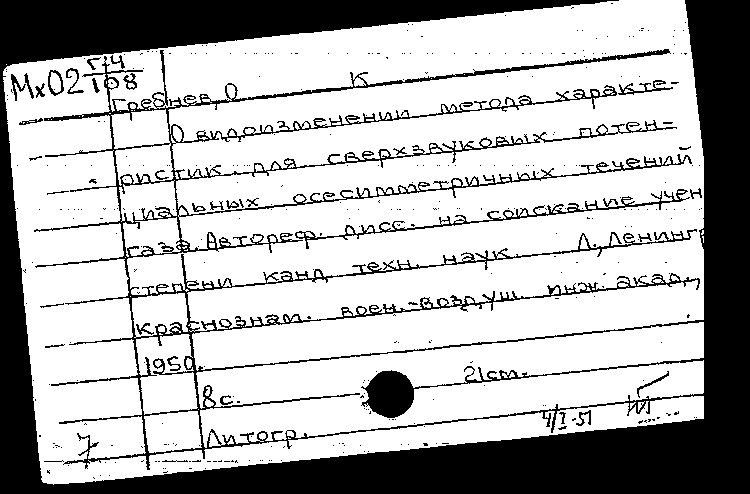 Мх02 Г-4/108
Гребнев, О К
О видоизменении метода характе-
ристик для сверхзвуковых потен-
циальных осесимметричных течений
газа. Автореф. дисс. на соискание учен
степени канд техн. наук. Л., Ленингр
краснознам. воен.-воздуш. инж. акад.,
1950.
8 с. 21 см.
Литогр.
7 4/I-51